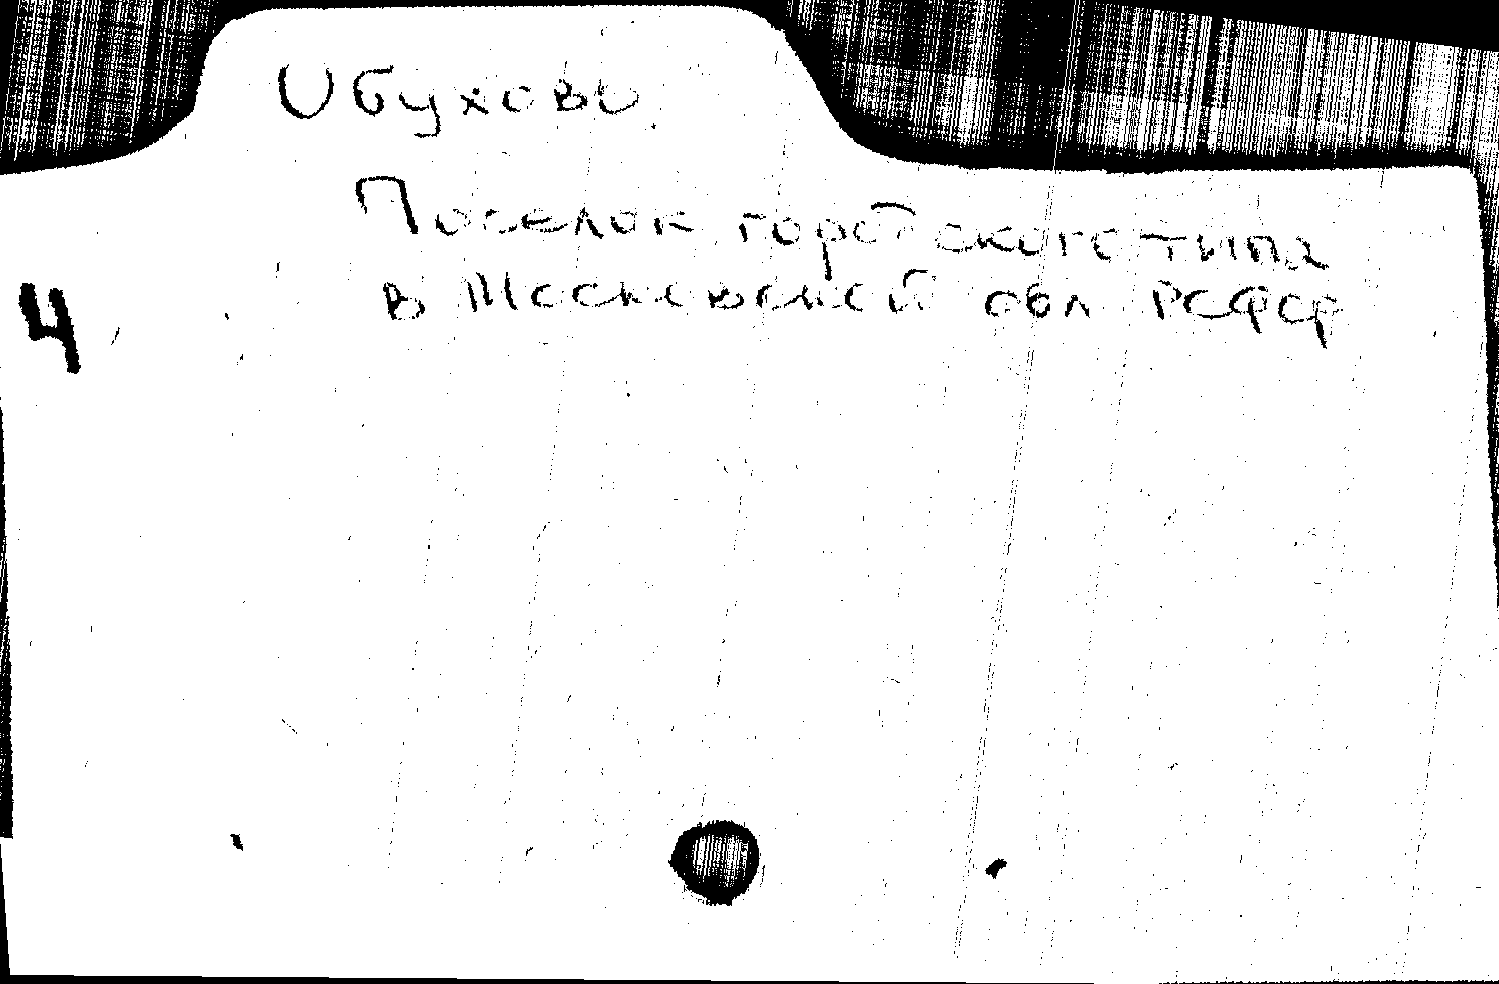 Обухово
Поселок городского типа
в Московской обл РСФСР
4